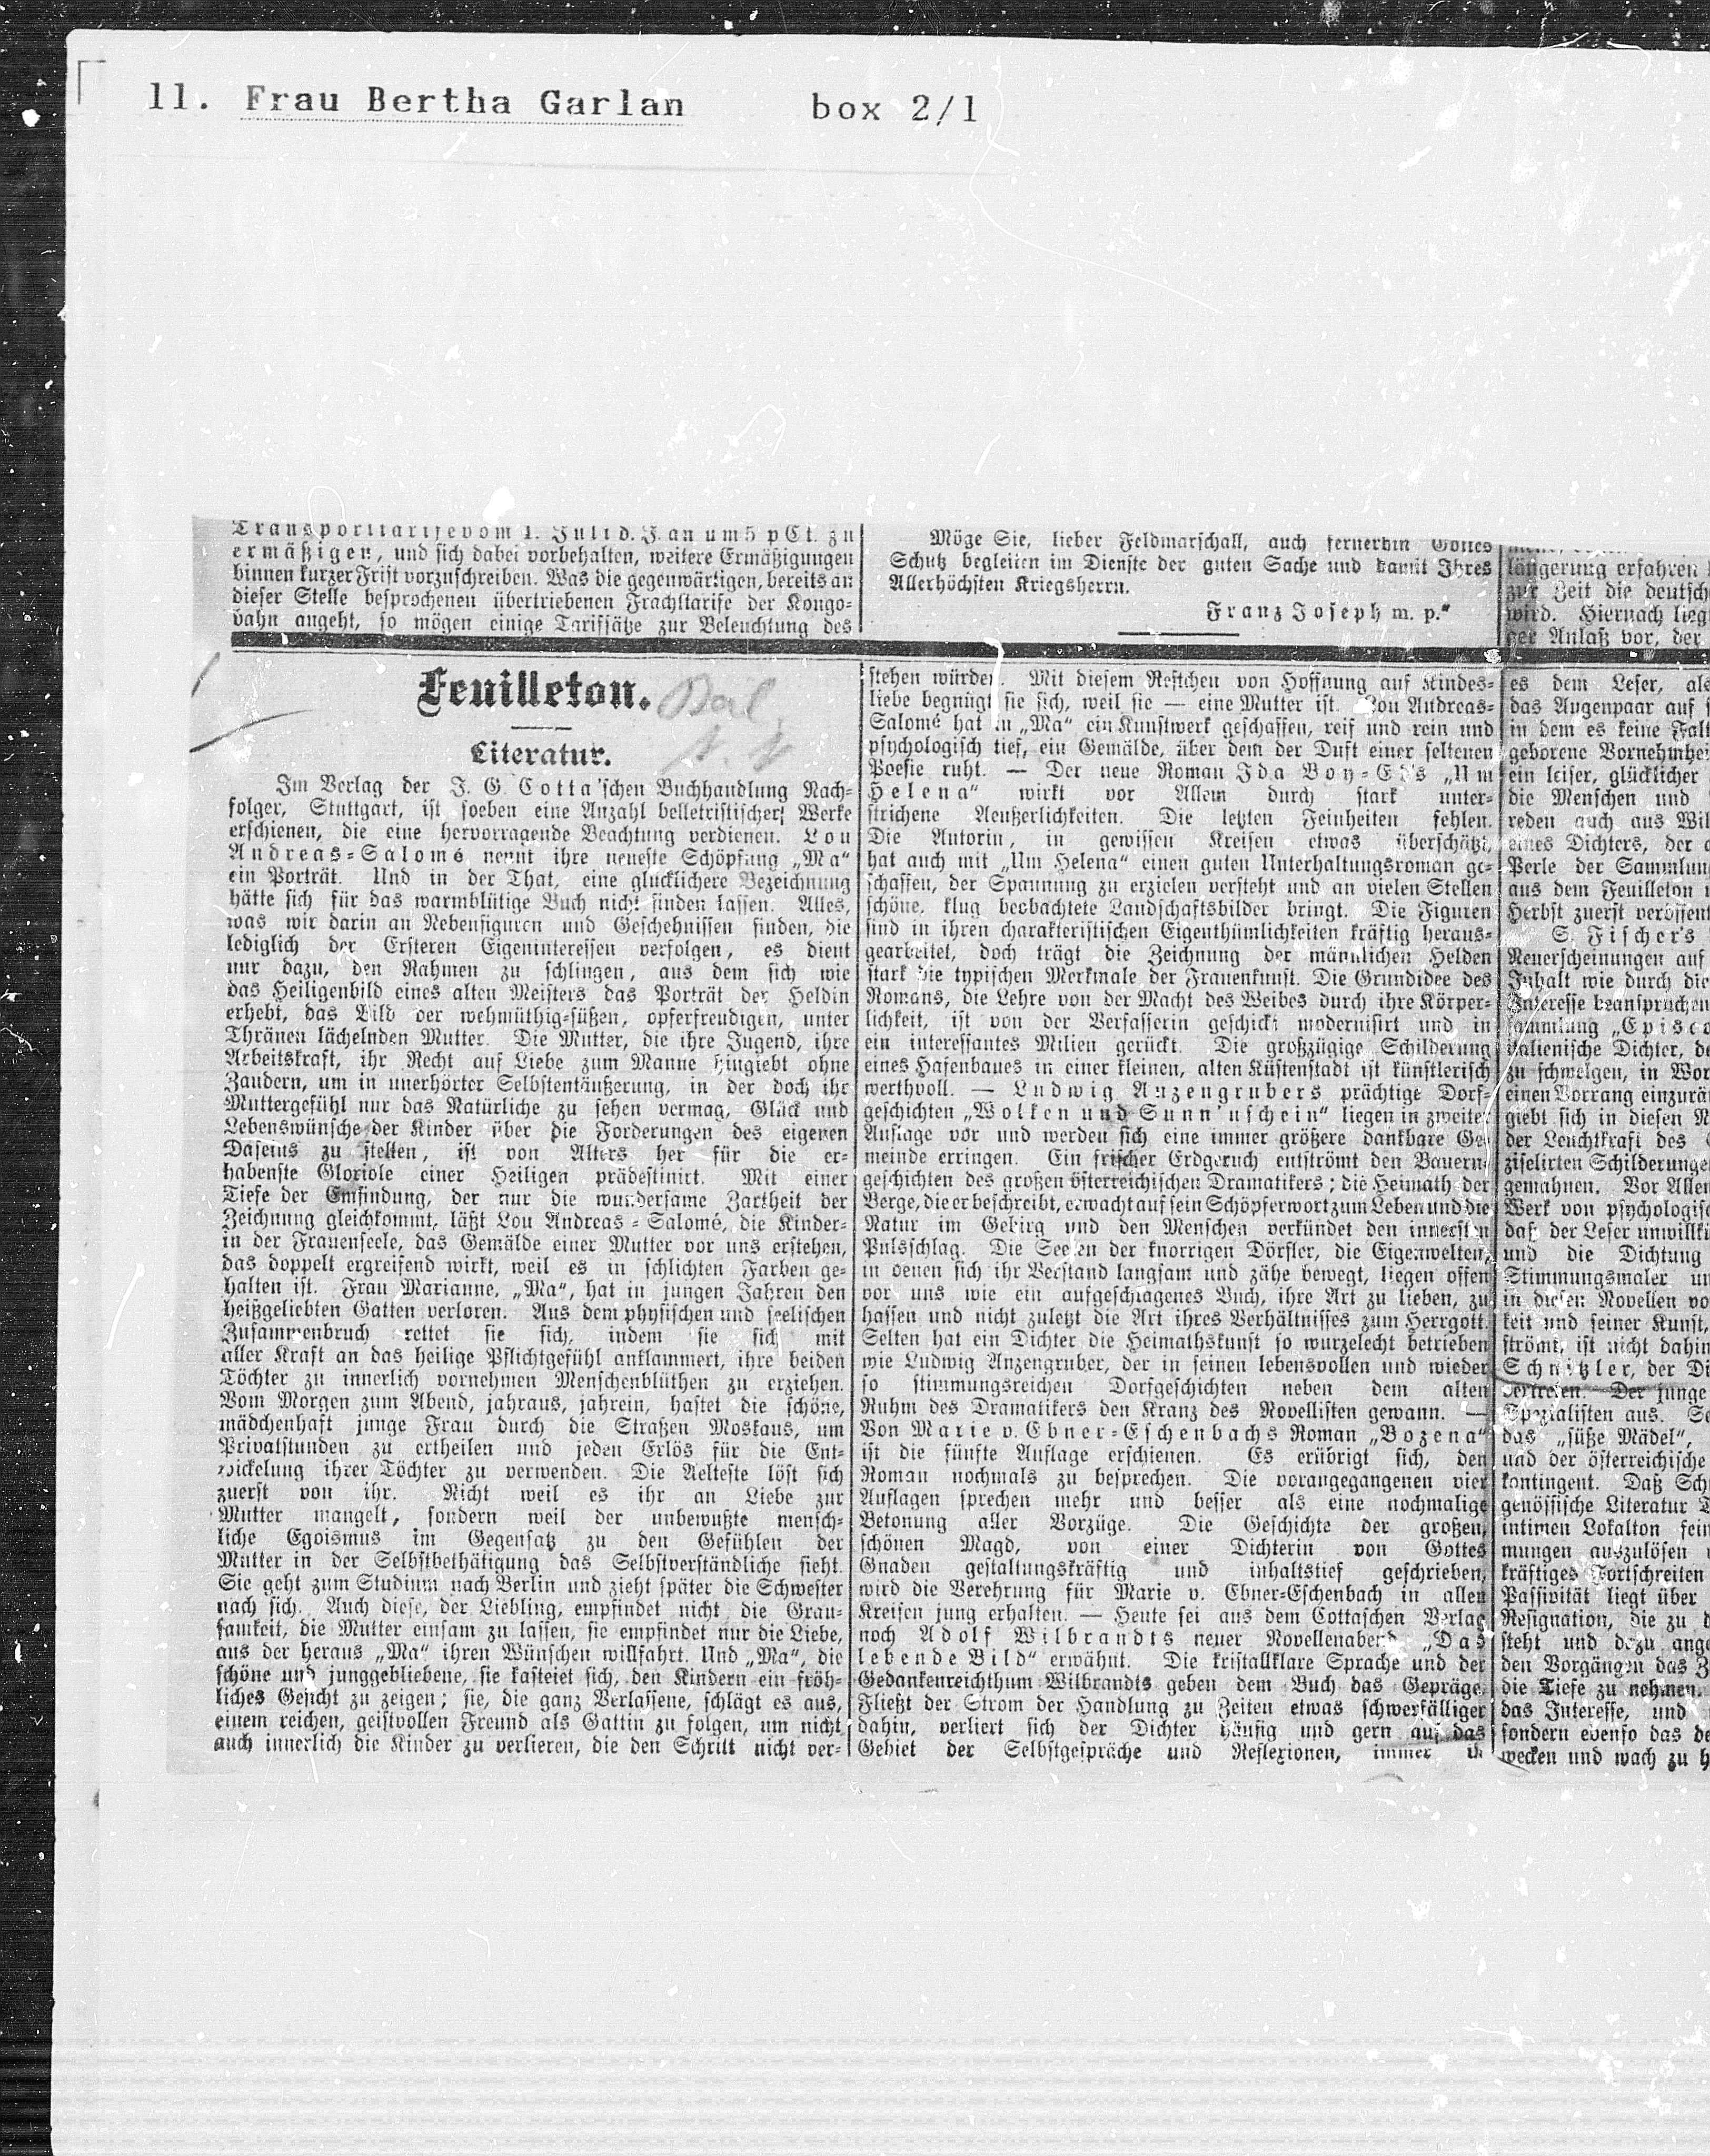 11. Frau Bertha Garlan box 2/1
Transporttarife vom 1. Juli d. J. an um 5 pCt. zu
ermäßigen, und sich dabei vorbehalten, weitere Ermäßigungen
binnen kurzer Frist vorzuschreiben. Was die gegenwärtigen, bereits an
dieser Stelle besprochenen übertriebenen Frachttarife der Kongo-
bahn angeht, so mögen einige Tarifsätze zur Beleuchtung des
Möge Sie, lieber Feldmarschall, auch fernerhin Gottes
Schutz begleiten im Dienste der guten Sache und damit Ihres
Allerhöchsten Kriegsherrn.
Franz Joseph m. p."
längerung erfahren
zur Zeit die deutsch
wird. Hiernach lieg
ger Anlaß vor, der
Feuilleton.
Literatur.
Im Verlag der J. G. Cotta'schen Buchhandlung Nach-
folger, Stuttgart, ist soeben eine Anzahl belletristischer Werke
erschienen, die eine hervorragende Beachtung verdienen. Lou
Andreas-Salomé nennt ihre neueste Schöpfung „Ma“
ein Porträt. Und in der That, eine glücklichere Bezeichnung
hätte sich für das warmblütige Buch nicht finden lassen. Alles,
was wir darin an Nebenfiguren und Geschehnissen finden, die
lediglich der Ersteren Eigeninteressen verfolgen, es dient
nur dazu, den Rahmen zu schlingen, aus dem sich wie
das Heiligenbild eines alten Meisters das Porträt der Heldin
erhebt, das Bild der wehmüthig-süßen, opferfreudigen, unter
Thränen lächelnden Mutter. Die Mutter, die ihre Jugend, ihre
Arbeitskraft, ihr Recht auf Liebe zum Manne hingiebt ohne
Zaudern, um in unerhörter Selbstentäußerung, in der doch ihr
Muttergefühl nur das Natürliche zu sehen vermag, Glück und
Lebenswünsche der Kinder über die Forderungen des eigenen
Daseins zu stellen, ist von Alters her für die er-
habenste Gloriole einer Heiligen prädestinirt. Mit einer
Tiefe der Empfindung, der nur die wundersame Zartheit der
Zeichnung gleichkommt, läßt Lou Andreas-Salomé, die Kinder-
in der Frauenseele, das Gemälde einer Mutter vor uns erstehen,
das doppelt ergreifend wirkt, weil es in schlichten Farben ge-
halten ist. Frau Marianne, „Ma“, hat in jungen Jahren den
heißgeliebten Gatten verloren. Aus dem physischen und seelischen
Zusammenbruch rettet sie sich, indem sie sich mit
aller Kraft an das heilige Pflichtgefühl anklammert, ihre beiden
Töchter zu innerlich vornehmen Menschenblüthen zu erziehen.
Vom Morgen zum Abend, jahraus, jahrein, hastet die schöne,
mädchenhaft junge Frau durch die Straßen Moskaus, um
Privatstunden zu ertheilen und jeden Erlös für die Ent-
wickelung ihrer Töchter zu verwenden. Die Aelteste löst sich
zuerst von ihr. Nicht weil es ihr an Liebe zur
Mutter mangelt, sondern weil der unbewußte mensch-
liche Egoismus im Gegensatz zu den Gefühlen der
Mutter in der Selbstbethätigung das Selbstverständliche sieht.
Sie geht zum Studium nach Berlin und zieht später die Schwester
nach sich. Auch diese, der Liebling, empfindet nicht die Grau-
samkeit, die Mutter einsam zu lassen, sie empfindet nur die Liebe,
aus der heraus „Ma“ ihren Wünschen willfahrt. Und „Ma“, die
schöne und junggebliebene, sie kasteiet sich, den Kindern ein fröh-
liches Gesicht zu zeigen; sie, die ganz Verlassene, schlägt es aus,
einem reichen, geistvollen Freund als Gattin zu folgen, um nicht
auch innerlich die Kinder zu verlieren, die den Schritt nicht ver-
stehen würden. Mit diesem Restchen von Hoffnung auf Kindes-
liebe begnügt sie sich, weil sie — eine Mutter ist. Lou Andreas-
Salomé hat in „Ma“ ein Kunstwerk geschaffen, reif und rein und
psychologisch tief, ein Gemälde, über dem der Duft einer seltenen
Poesie ruht. — Der neue Roman Ida Boy-Ed's „Um
Helena“ wirkt vor Allem durch stark unter-
strichene Aeußerlichkeiten. Die letzten Feinheiten fehlen.
Die Autorin, in gewissen Kreisen etwas überschätzt,
hat auch mit „Um Helena“ einen guten Unterhaltungsroman ge-
schaffen, der Spannung zu erzielen versteht und an vielen Stellen
schöne, klug beobachtete Landschaftsbilder bringt. Die Figuren
sind in ihren charakteristischen Eigenthümlichkeiten kräftig heraus-
gearbeitet, doch trägt die Zeichnung der männlichen Helden
stark die typischen Merkmale der Frauenkunst. Die Grundidee des
Romans, die Lehre von der Macht des Weibes durch ihre Körper-
lichkeit, ist von der Verfasserin geschickt modernisirt und in
ein interessantes Milieu gerückt. Die großzügige Schilderung
eines Hafenbaues in einer kleinen, alten Küstenstadt ist künstlerisch
werthvoll. — Ludwig Anzengrubers prächtige Dorf-
geschichten „Wolken und Sunn'nschein“ liegen in zweiter
Auflage vor und werden sich eine immer größere dankbare Ge-
meinde erringen. Ein frischer Erdgeruch entströmt den Bauern-
geschichten des großen österreichischen Dramatikers; die Heimath der
Berge, die er beschreibt, erwacht auf sein Schöpferwort zum Leben und die
Natur im Gebirg und den Menschen verkündet den innersten
Pulsschlag. Die Seelen der knorrigen Dörfler, die Eigenwelten,
in denen sich ihr Verstand langsam und zähe bewegt, liegen offen
vor uns wie ein aufgeschlagenes Buch, ihre Art zu lieben, zu
hassen und nicht zuletzt die Art ihres Verhältnisses zum Herrgott.
Selten hat ein Dichter die Heimathskunst so wurzelecht betrieben
wie Ludwig Anzengruber, der in seinen lebensvollen und wieder
so stimmungsreichen Dorfgeschichten neben dem alten
Ruhm des Dramatikers den Kranz des Novellisten gewann. —
Von Marie v. Ebner-Eschenbachs Roman „Bozena“
ist die fünfte Auflage erschienen. Es erübrigt sich, den
Roman nochmals zu besprechen. Die vorangegangenen vier
Auflagen sprechen mehr und besser als eine nochmalige
Betonung aller Vorzüge. Die Geschichte der großen,
schönen Magd, von einer Dichterin von Gottes
Gnaden gestaltungskräftig und inhaltstief geschrieben,
wird die Verehrung für Marie v. Ebner-Eschenbach in allen
Kreisen jung erhalten. — Heute sei aus dem Cottaschen Verlag
noch Adolf Wilbrandts neuer Novellenabend „Das
lebende Bild“ erwähnt. Die kristallklare Sprache und der
Gedankenreichthum Wilbrandts geben dem Buch das Gepräge.
Fließt der Strom der Handlung zu Zeiten etwas schwerfälliger
dahin, verliert sich der Dichter häufig und gern auf das
Gebiet der Selbstgespräche und Reflexionen, immer
es dem Leser, als
das Augenpaar auf
in dem es keine Falt
geborene Vornehmhei
ein leiser, glücklicher
die Menschen und
reden auch aus Wil
eines Dichters, der
Perle der Sammlun
aus dem Feuilleton
Herbst zuerst veröffent
S. Fischer's
Neuerscheinungen auf
Inhalt wie durch die
Interesse beanspruchen
sammlung „Episco
italienische Dichter, de
zu schwelgen, in Wor
einen Vorrang einzurä
giebt sich in diesen N
der Leuchtkraft des
ziselirten Schilderunge
gemahnen. Vor Allen
Werk von psychologisc
daß der Leser unwillkü
und die Dichtung
Stimmungsmaler un
in diesen Novellen vo
keit und seiner Kunst,
strömt, ist nicht dahin
Schnitzler, der Di
vertreten. Der junge
Spezialisten aus. Se
das „süße Mädel“,
und der österreichische
kontingent. Daß Sch
genössische Literatur
intimen Lokalton fein
mungen auszulösen
kräftiges Fortschreiten
Passivität liegt über
Resignation, die zu d
steht und dazu ange
den Vorgängen das Z
die Tiefe zu nehmen.
das Interesse, und
sondern ebenso das de
wecken und wach zu h